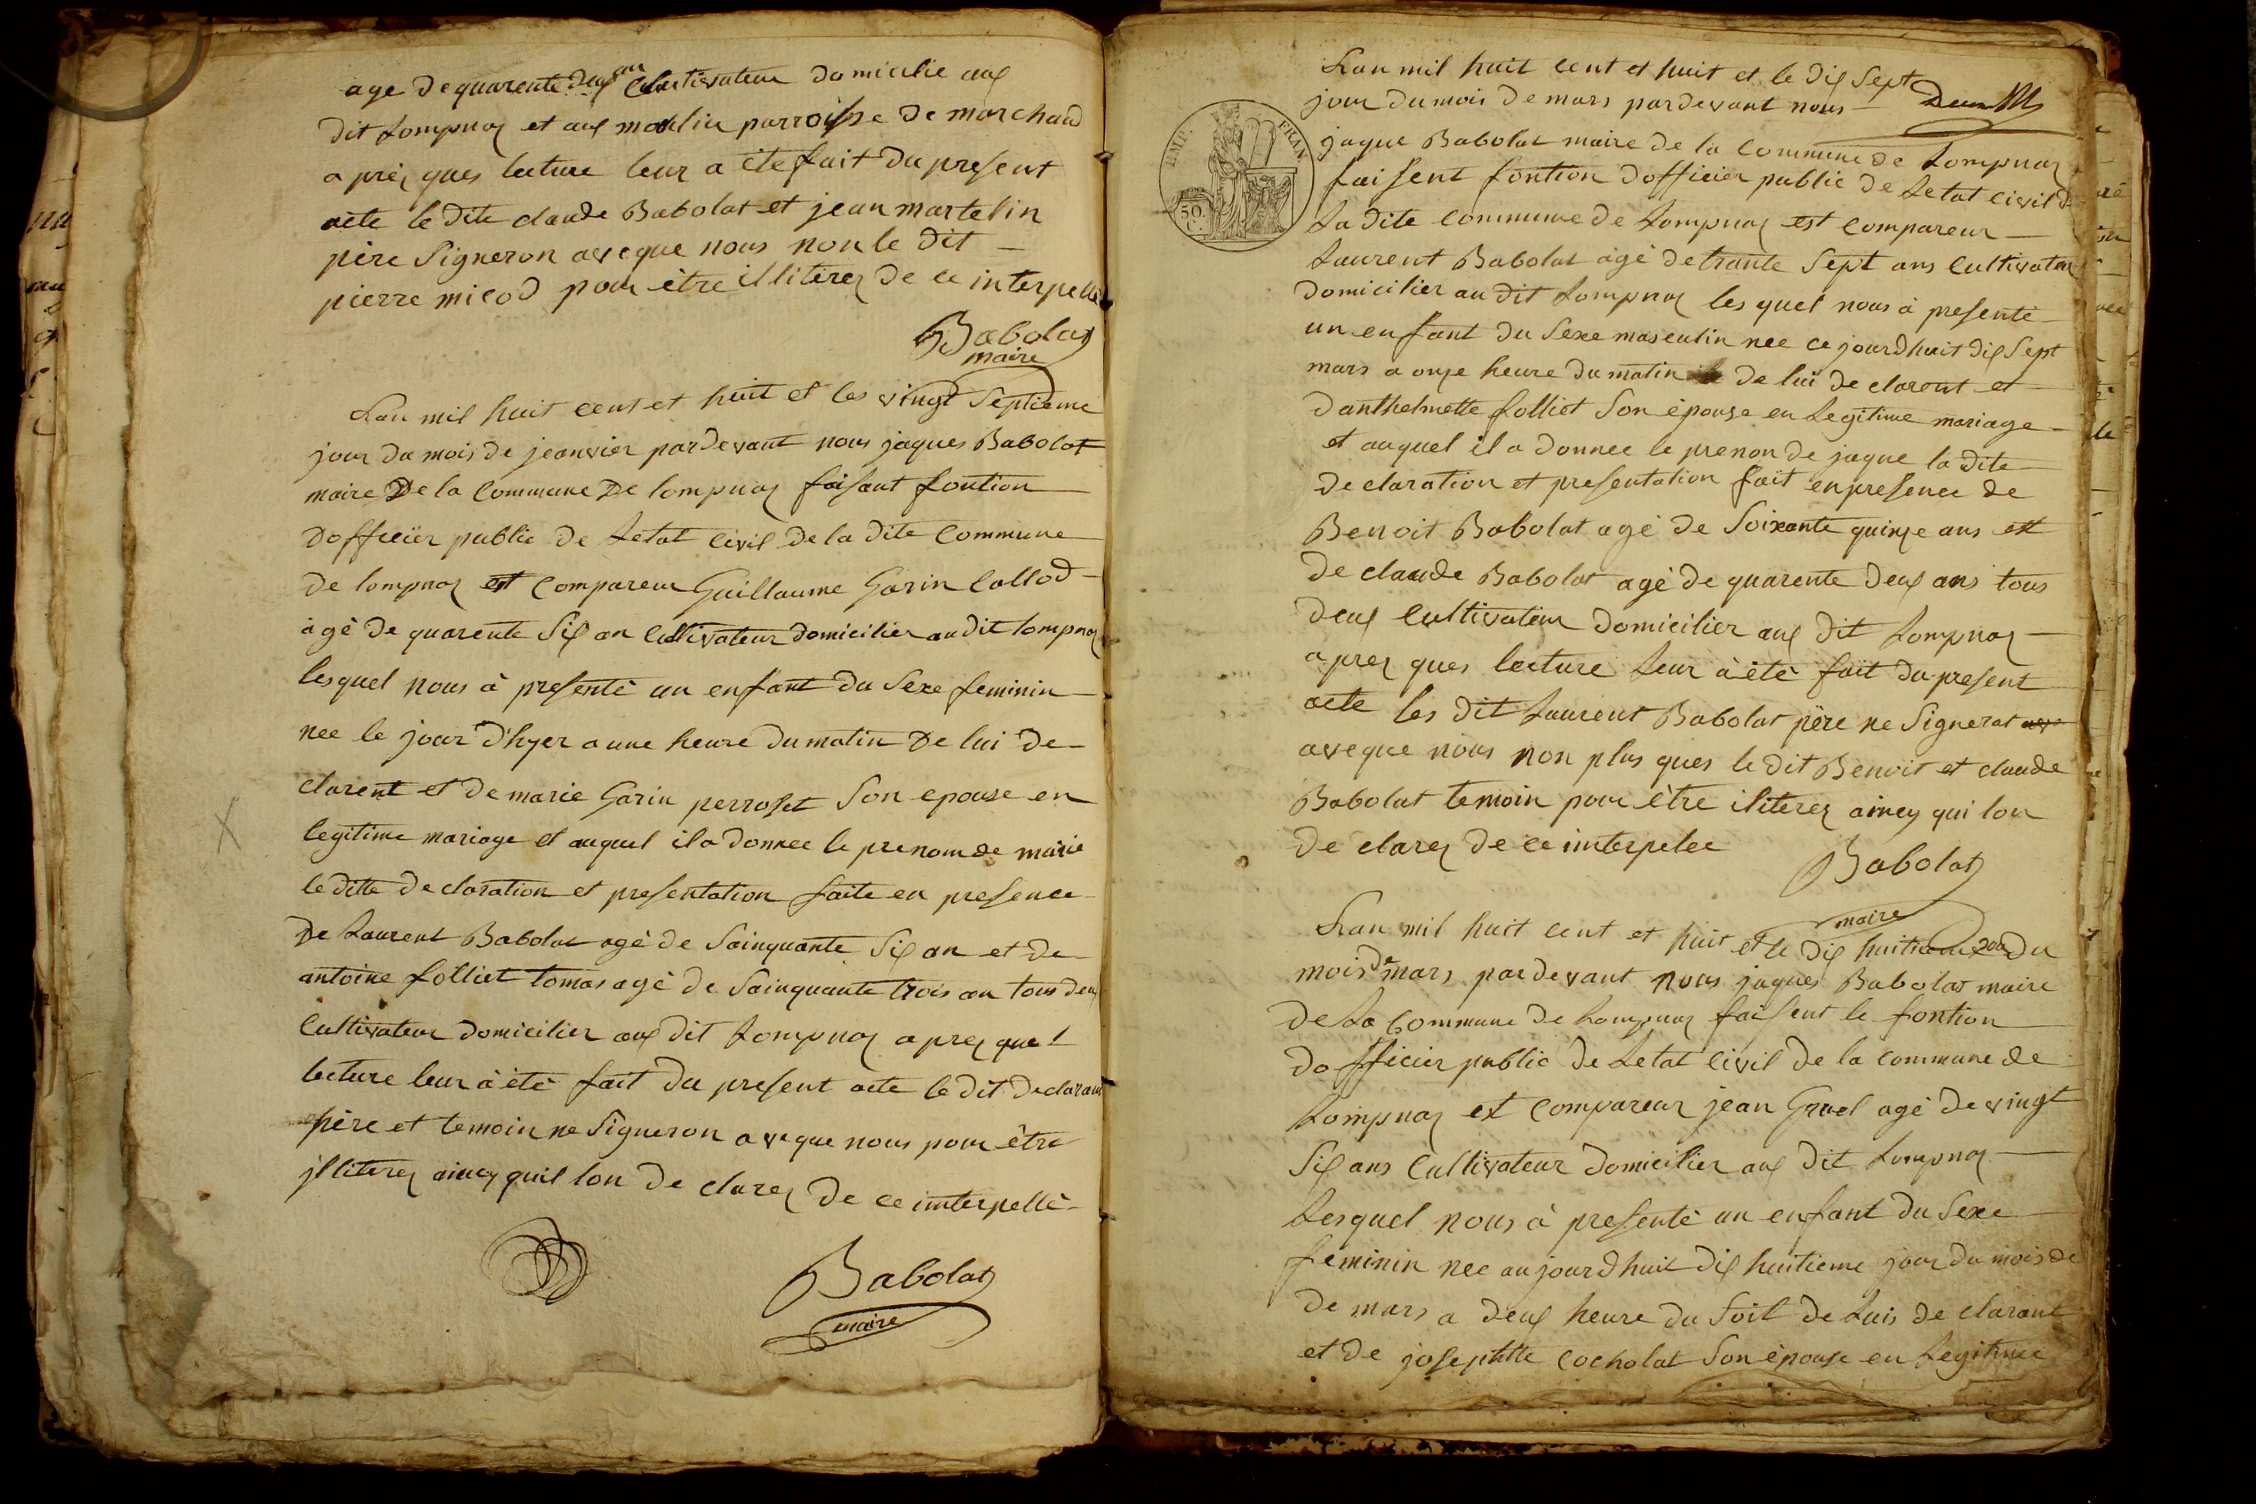 age de quarente deux an Cultivateur domicilie aux
dit Lompnaz et aux moulin parroisse de marchand
aprèz ques lecture leur a ète fait du present
acte le dite claude Babolat et jean martelin
père Signeron aveque nous non le dit
pierre micod pour ètre illiterez de ce interpellé
Babolat
maire
Lan mil huit cent et huit et les vingt Septieme
jour du mois de jeanvier pardevant nous jaques Babolat
maire De la Commune De lompnaz faisant fontion
Dofficiër public de Letat Civil de la dite Commune
de lompnaz est Compareur Guillaume Garin Collod
àgè de quarente Six an Cultivateur domicilier au dit lompnaz
lesquel nous à presentè un enfant du Sexe feminin
nee le jour d'hyer a une heure du matin De lui de
clarent et de marie Garin perroset Son epouse en
legitime mariage et auquel il a donnee le prenom de marie
le ditte declaration et presentation faite en presence
De Laurent Babolat agè de Sainquante Six an et de
antoine folliet tomas agè de Sainquante trois an tous deux
Cultivateur domicilier aux dit Lompnaz aprez que l
lecture leur à ètè fait du present acte le dit declarant
père et temoin ne Signeron aveque nous pour être
illiterez aincy quil lon de clarez de ce imterpellè
Babolat
maire
Lan mil huit cent et huit et le dix Sept
jour du mois de mars pardevant nous
EMP. FRAN
50. C.
jaque Babolat maire de la Commune de Lompnaz
faisent fontion dofficier public de Letat civil d
La dite Commune de Lompnaz est Compareur
Laurent Babolat àgè de trante Sept ans Cultivateur
domicilier au dit Lompnaz les quel nous à presentè
un enfant du Sexe masculin nee ce jourdhuit dix Sept
mars a onze heure du matin de lui de clarent et
danthelmette folliet Son èpouse en Legitime mariage
et auquel il a donnee le prenon de jaque la dite
declaration et presentation fait en presence de
Benoit Babolat agè de Soixante quinze ans est
de claude Babolat agè de quarente deux ans tous
deux Cultivateur domicilier aux dit Lompnaz
aprez ques lecture Leur à ètè fait du present
acte les dit Laurent Babolat père ne Signerat
aveque nous non plus ques le dit Benoit et claude
Babolat temoin pour être iliterez aincy qui lon
de clarez de ce imterpelee
Babolat
maire
Lan mil huit cent et huit et le dix huitieme jour du
mois de mars pardevant nous jaques Babolat maire
de La Commune de Lompnaz faisent le fontion
dofficier public de Letat Civil de la commune de
Lompnaz est Compareur jean Gruel agè de vingt
Six ans Cultivateur domicilier aux dit Lompnaz
Lesquel nous à presentè un enfant du Sexe
feminin nee aujourdhuit dix huitieme jour du mois de
de mars a deux heure du Soit de Luis de clarant
et de josephtte Cocholat Son èpouse en Legitime